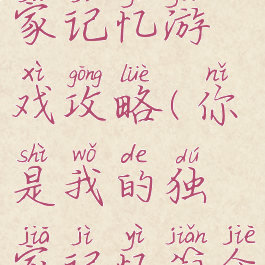 家记忆游
xì gōng lüè nǐ
戏攻略(你
shì wǒ de dú
是我的独
jiā jì yì jiǎn jiē
家记忆